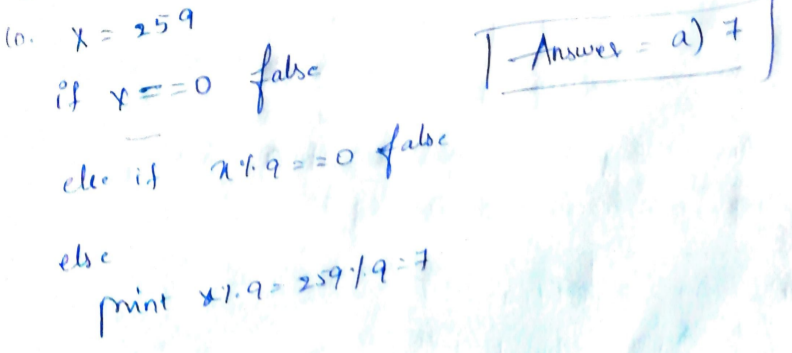 10. X = 259
if x == 0 false
Answer = a) 7
else if x % 9 == 0 false
else
print x % 9 = 259 % 9 = 7